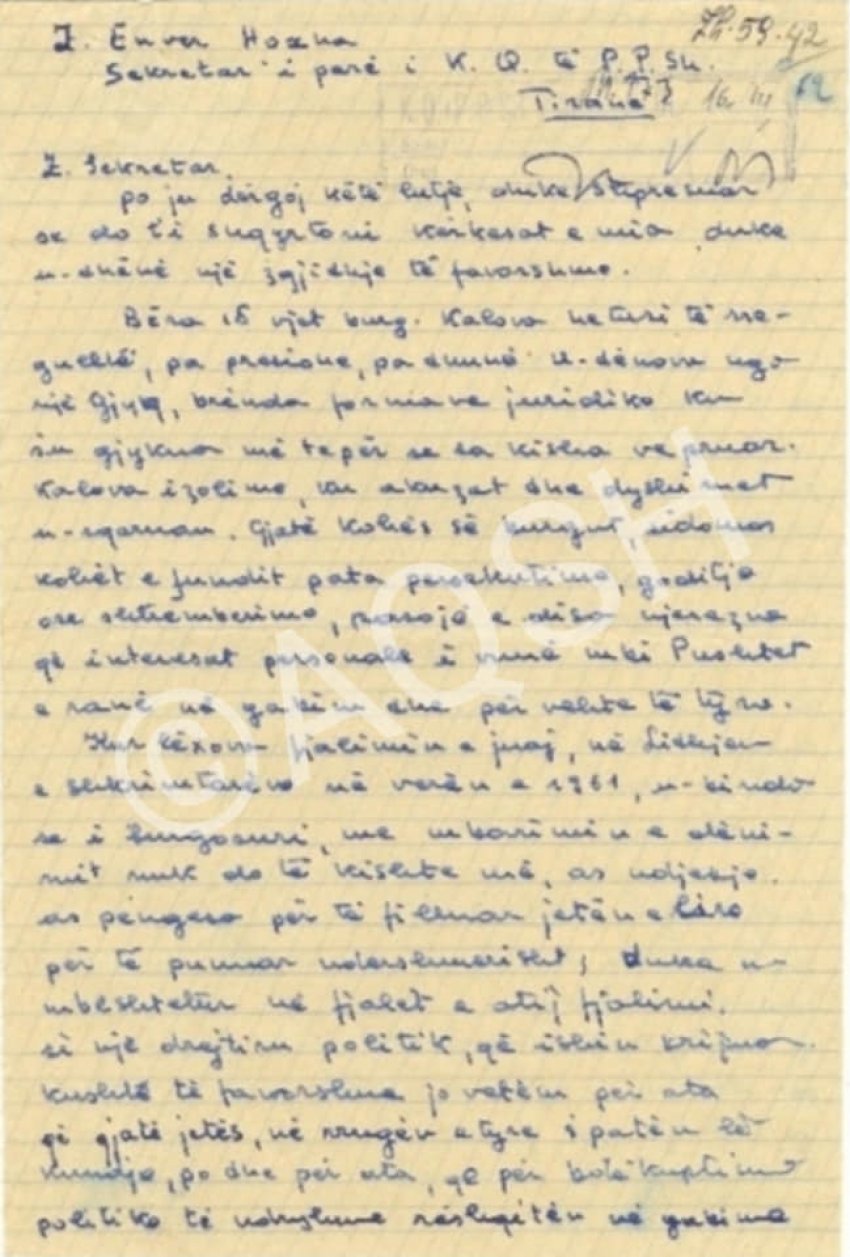 Zh-59-42
Z. Enver Hoxha
Sekretar i parë i K. Q. të P. P. Sh.
Tiranë 16 III 12
Z. Sekretar.
po ju dërgoj këtë lutje, duke shpresuar
se do t'i shqyrtoni kërkesat e mia duke
u-dhënë një zgjidhje të favorshme.
Bëra 15 vjet burg. Kalova hetusi të rre-
gulltë, pa presione, pa dhunë u-dënova nga
një Gjyq, brënda formave juridike ku
su gjykua më tepër se sa kisha vepruar.
Kalova izolime, ku akuzat dhe dyshimet
u-sqaruan. Gjatë kohës së burgut, sidomos
kohët e fundit pata persekutime, goditje
ose shtrembërime, pasojë e disa njerëzve
që interesat personale i vunë mbi Pushtet
e ranë në gabim dhe për vehte të tyre.
Kur lëxova fjalimin e juaj, në Lidhjen
e shkrimtarëve në verën e 1961, u-binda
se i burgosuri, me mbarimin e dëni-
mit nuk do të kishte më, as ndjekje.
as pëngesa për të filluar jetën e lirë
për të punuar ndershmërisht; duke u-
mbështetur në fjalët e atij fjalimi.
si një drejtim politik, që ishin krijuar
kushte të favorshme jo vetëm për ata
që gjatë jetës, në rrugën e tyre s'patën lë-
kundje, po dhe për ata, që për botëkuptime
politike të ndryshme rrëshqitën në gabime
© AQSH